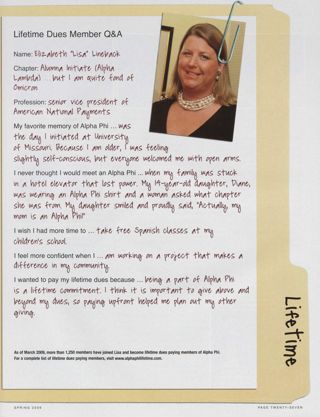 Lifetime Dues Member Q&A
Name: Elizabeth "Lisa" Lineback
Chapter: Alumna Initiate (Alpha
Lambda) ... but I am quite fond of
Omicron
Profession: senior vice president of
American National Payments
My favorite memory of Alpha Phi ... was
the day I initiated at University
of Missouri. Because I am older, I was feeling
slightly self-conscious, but everyone welcomed me with open arms.
I never thought I would meet an Alpha Phi ... when my family was stuck
in a hotel elevator that lost power. My 14-year-old daughter, Diane,
was wearing an Alpha Phi shirt and a woman asked what chapter
she was from. My daughter smiled and proudly said, "Actually, my
mom is an Alpha Phi!"
I wish I had more time to ... take free Spanish classes at my
children's school.
I feel more confident when I ... am working on a project that makes a
difference in my community.
I wanted to pay my lifetime dues because ... being a part of Alpha Phi
is a lifetime commitment. I think it is important to give above and
beyond my dues, so paying upfront helped me plan out my other
giving.
Lifetime
As of March 2009, more than 1,250 members have joined Lisa and become lifetime dues paying members of Alpha Phi.
For a complete list of lifetime dues paying members, visit www.alphaphilifetime.com.
SPRING 2009
PAGE TWENTY-SEVEN